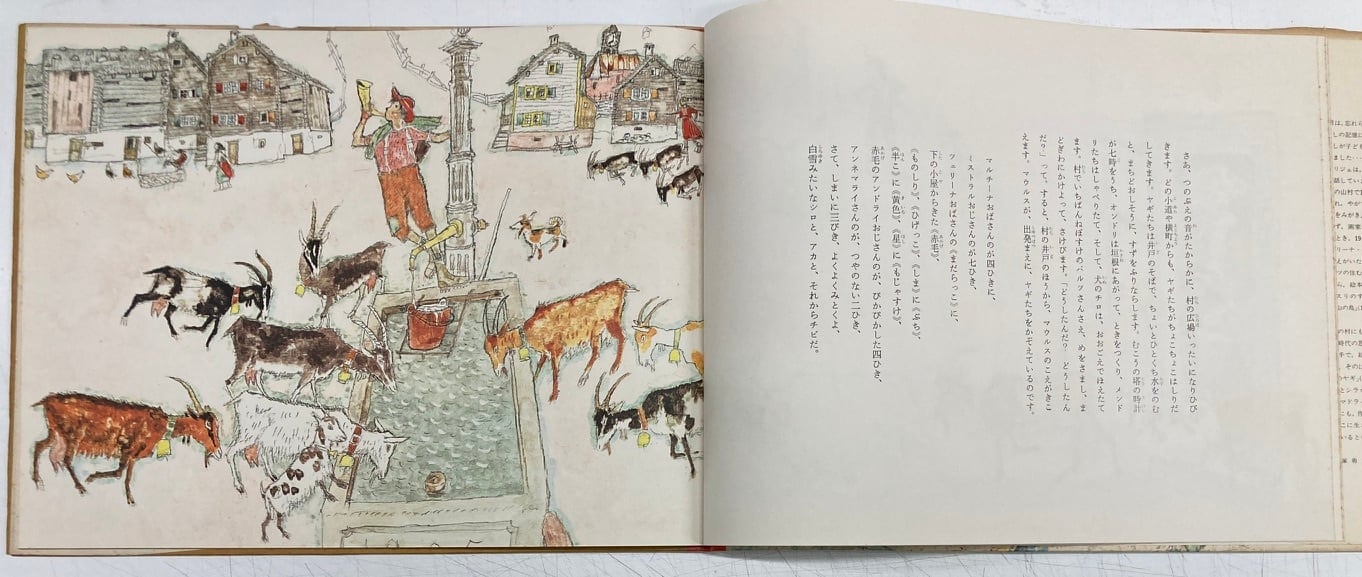 さあ、つのぶえの音がたからかに、村の広場いったいになりひび
きます。どの小道や横町からも、ヤギたちがちょこちょこはしりだ
してきます。ヤギたちは井戸のそばで、ちょいとひとくち水をのむ
と、まちどおしそうに、すずをふりならします。むこうの塔の時計
が七時をうち、オンドリは垣根にあがって、ときをつくり、メンド
リたちはしゃべりたて、そして、犬のチロは、おおごえでほえたて
ます。村でいちばんねぼすけのベルツさんさえ、めをさまし、ま
どぎわにかけよって、さけびます。「どうしたんだ？　どうしたん
だ？」って。すると、村の井戸のほうから、マウルスのこえがきこ
えます。マウルスが、出発まえに、ヤギたちをかぞえているのです。
マルチーナおばさんのが四ひきに、
ミストラルおじさんのが七ひき、
ツェリーナおばさんの《まだらっこ》に、
下の小屋からきた《赤毛》、
《ものしり》、《ひげっこ》、《しま》に《ぶち》、
《半こ》に《黄色》、《星》に《もじゃすけ》、
赤毛のアンドライおじさんのが、ぴかぴかした四ひき、
アンネマライさんのが、つやのない二ひき、
さて、しまいに三びき、よくよくみとくよ、
白雪みたいなシロと、アカと、それからチビだ。